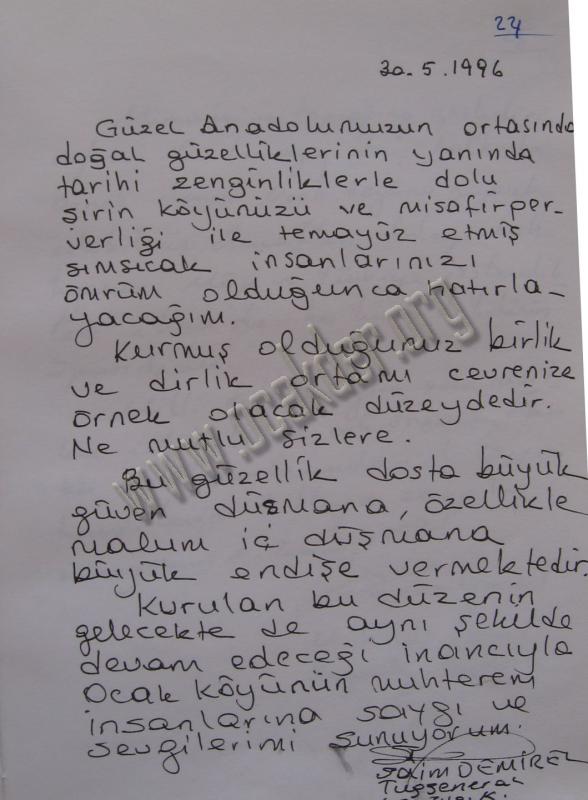 24
30.5.1996
Güzel Anadolumuzun ortasında
doğal güzelliklerinin yanında
tarihi zenginliklerle dolu
şirin köyünüzü ve misafirper-
verliği ile temayüz etmiş
sımsıcak insanlarınızı
ömrüm olduğunca hatırla-
yacağım.
Kurmuş olduğunuz birlik
ve dirlik ortamı çevrenize
örnek olacak düzeydedir.
Ne mutlu sizlere.
Bu güzellik dosta büyük
güven düşmana, özellikle
malum iç düşmana
büyük endişe vermektedir.
Kurulan bu düzenin
gelecekte de aynı şekilde
devam edeceği inancıyla
Ocak köyünün muhterem
insanlarına saygı ve
sevgilerimi sunuyorum.
Saim DEMİREL
Tuğgeneral
www.ocaktasr.org